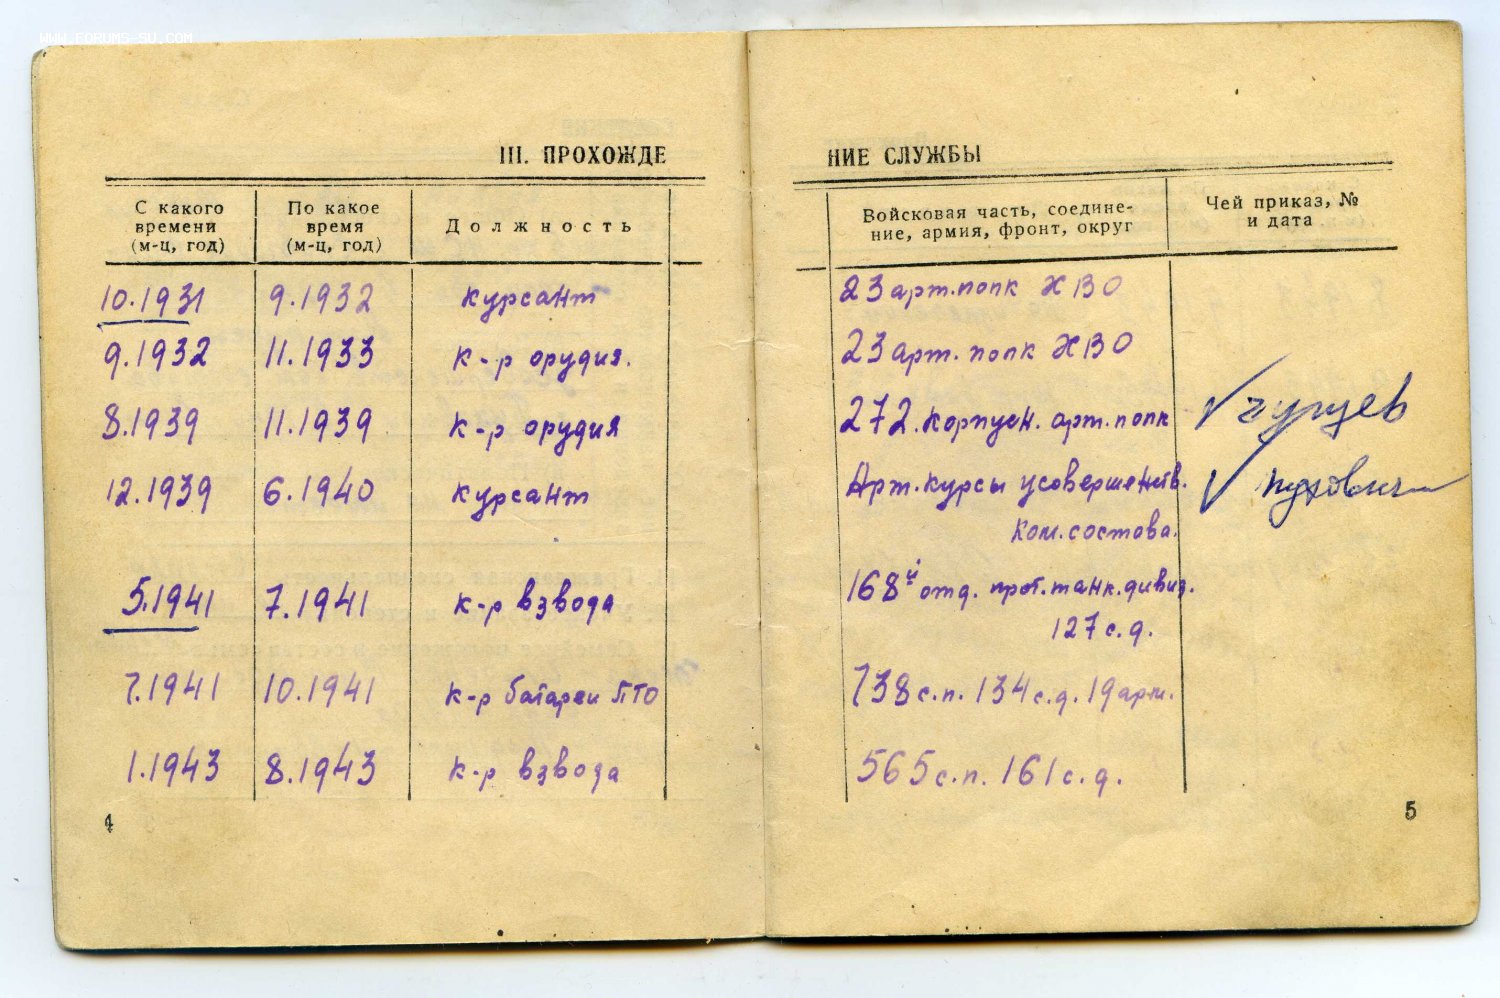 WWW.FORUMS-SU.COM
III. ПРОХОЖДЕ НИЕ СЛУЖБЫ
С какого времени (м-ц, год) По какое время (м-ц, год) Должность Войсковая часть, соедине- ние, армия, фронт, округ Чей приказ, № и дата
10.1931 9.1932 курсант 23 арт.полк ХВО
9.1932 11.1933 к-р орудия. 23 арт. полк ХВО
8.1939 11.1939 к-р орудия 272. корпусн. арт. полк
12.1939 6.1940 курсант Арт. курсы усовершенств.
ком.состава.
5.1941 7.1941 к-р взвода 168й отд. прот.танк.дивиз.
127 с.д.
7.1941 10.1941 к-р батареи ПТО 738 с.п. 134 с.д. 19 арм.
1.1943 8.1943 к-р взвода 565 с.п. 161 с.д.
4 5